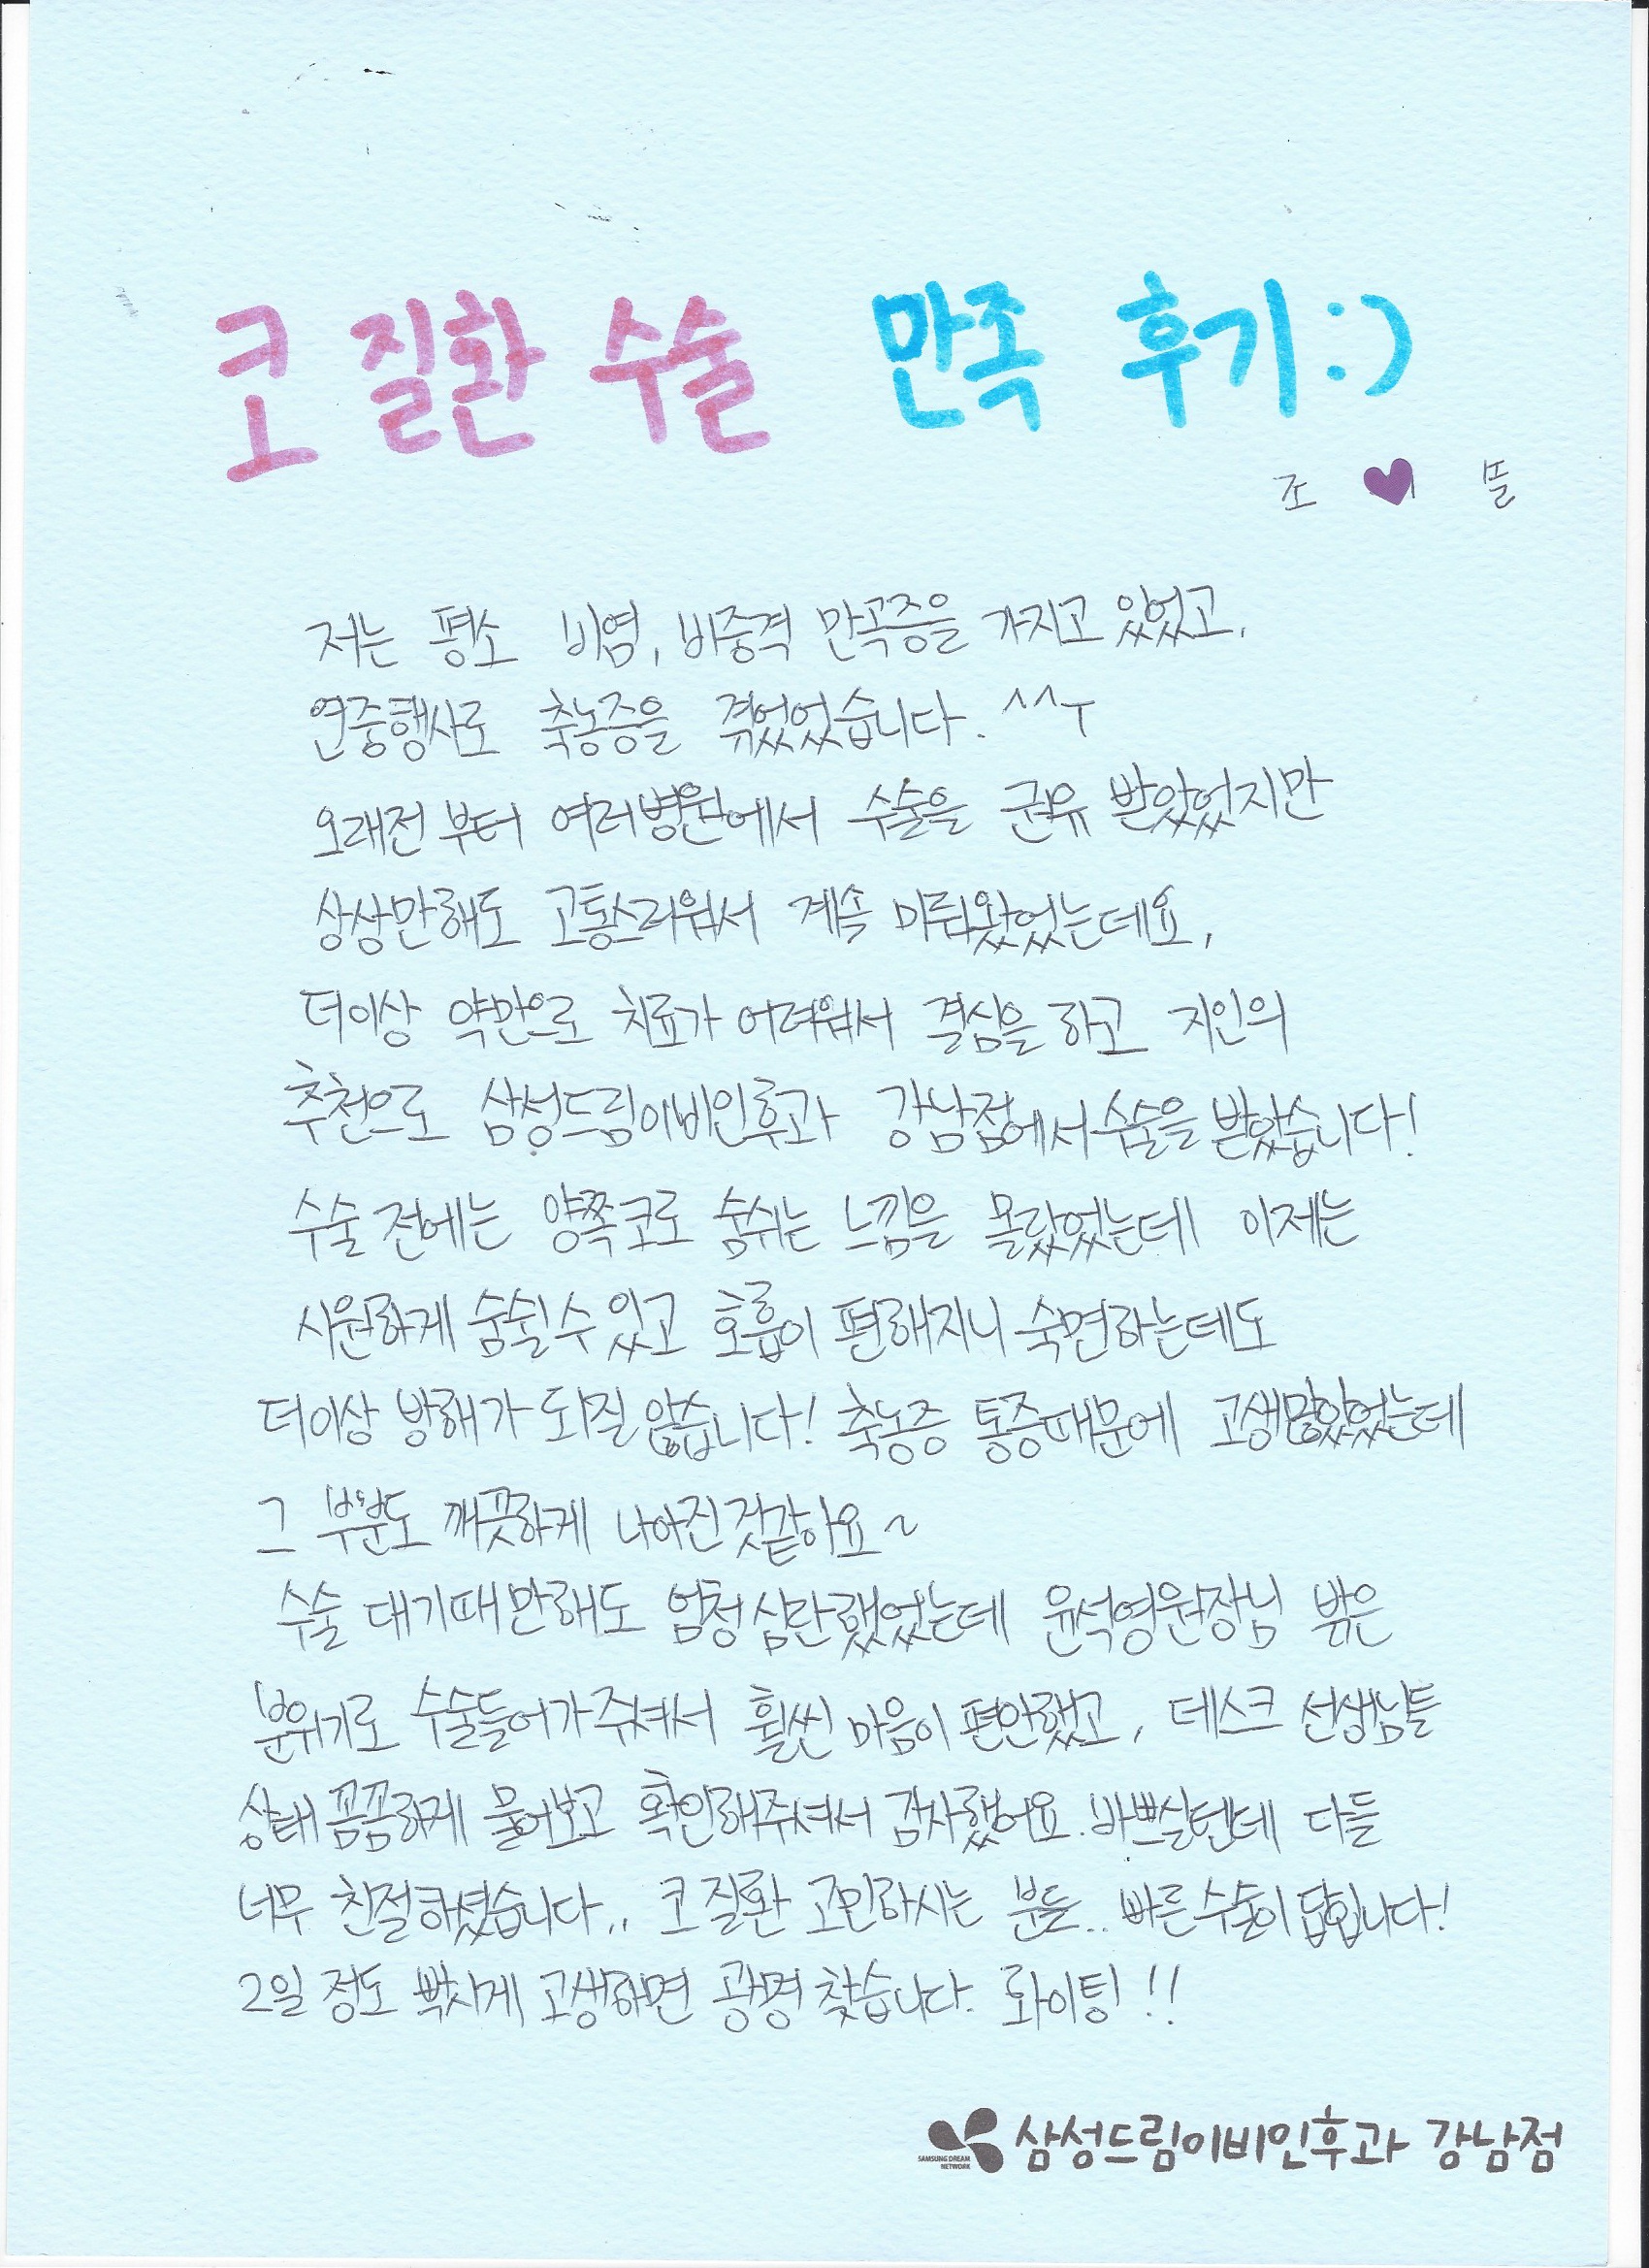 코 질환 수술 만족 후기:)
조 뜰
저는 평소 비염, 비중격 만곡증을 가지고 있었고,
연중행사로 축농증을 겪었었습니다. ^^ㅜ
오래전부터 여러병원에서 수술을 권유 받았었지만
상상만해도 고통스러워서 계속 미뤄왔었는데요,
더이상 약만으로 치료가 어려워서 결심을 하고 지인의
추천으로 삼성드림이비인후과 강남점에서 수술을 받았습니다!
수술 전에는 양쪽코로 숨쉬는 느낌을 몰랐었는데 이제는
시원하게 숨쉴수있고 호흡이 편해지니 숙면하는데도
더이상 방해가 되질 않습니다! 축농증 통증때문에 고생많았었는데
그 부분도 깨끗하게 나아진것같아요~
수술 대기때만해도 엄청심란했었는데 윤석영원장님 밖은
분위기로 수술들어가주셔서 훨씬 마음이 편안했고, 데스크 선생님들
상태 꼼꼼하게 물어보고 확인해주셔서 감사했어요. 바쁘실텐데 다들
너무 친절하셨습니다.. 코 질환 고민하시는 분들.. 빠른수술이 답입니다!
2일 정도 빡시게 고생하면 광명 찾습니다. 화이팅!!
SAMSUNG DREAM NETWORK 삼성드림이비인후과 강남점